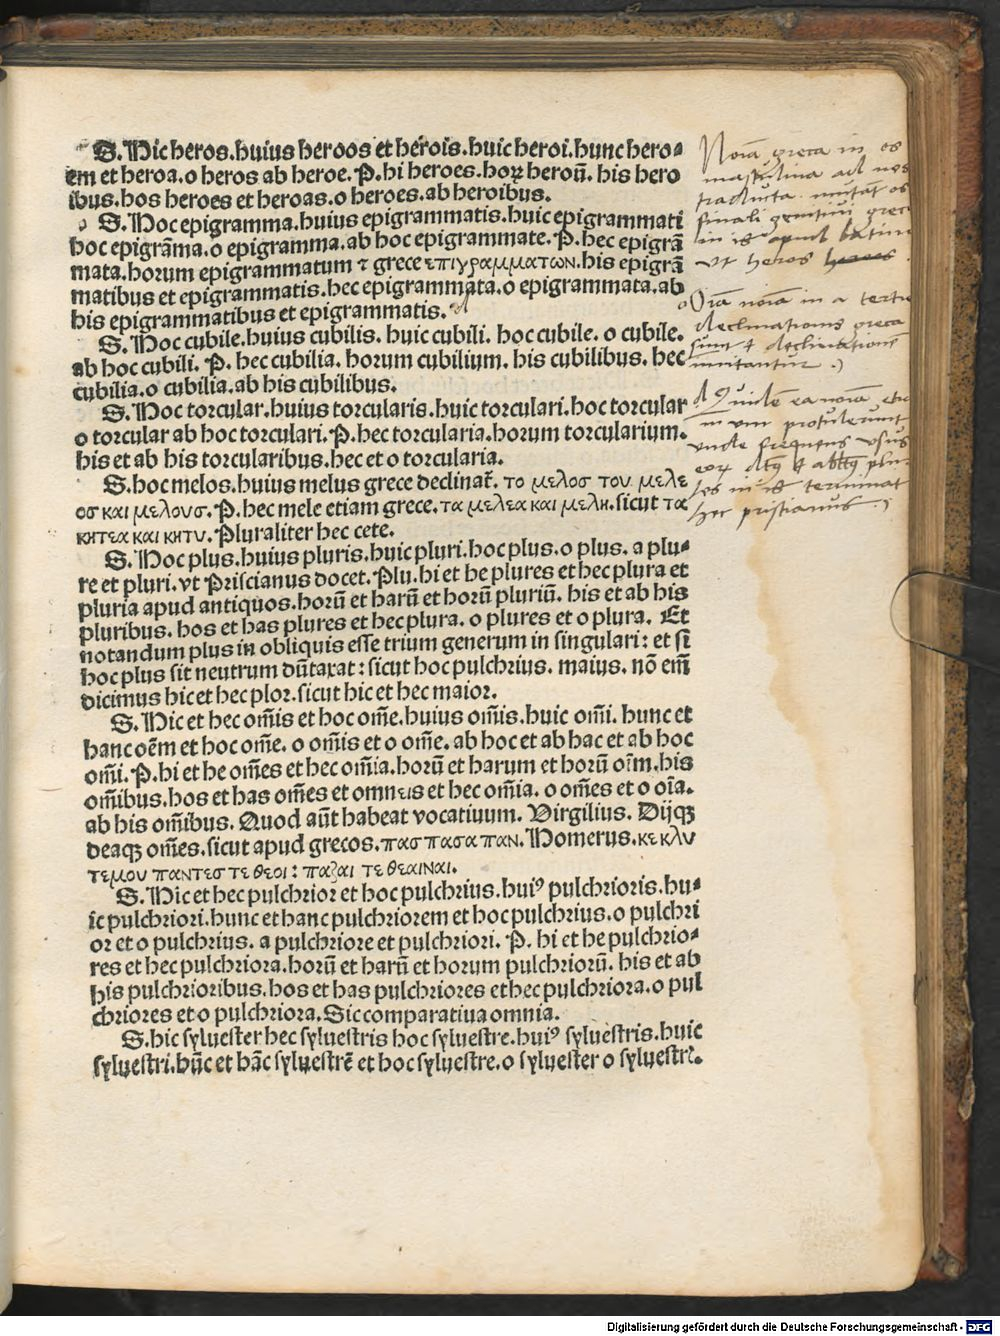 S. Hic heros. huius heroos et herois. huic heroi. hunc hero⸗
em et heroa. o heros ab heroe. P. hi heroes. hoꝝ heroū. his hero
ibus. hos heroes et heroas. o heroes. ab heroibus.
S. Hoc epigramma. huius epigrammatis. huic epigrammati
hoc epigrāma. o epigramma. ab hoc epigrammate. P. hec epigrā
mata. horum epigrammatum ⁊ grece επιγραμματων. his epigrā
matibus et epigrammatis. hec epigrammata. o epigrammata. ab
his epigrammatibus et epigrammatis.
S. Hoc cubile. huius cubilis. huic cubili. hoc cubile. o cubile.
ab hoc cubili. P. hec cubilia. horum cubilium. his cubilibus. hec
cubilia. o cubilia. ab his cubilibus.
S. Hoc torcular. huius torcularis. huic torculari. hoc torcular
o torcular ab hoc torculari. P. hec torcularia. horum torcularium.
his et ab his torcularibus. hec et o torcularia.
S. hoc melos. huius melus grece declinat̄. το μελοσ του μελε
οσ και μελουσ. P. hec mele etiam grece. τα μελεα και μελη. sicut τα
κητεα και κητυ. Pluraliter hec cete.
S. Hoc plus. huius pluris. huic pluri. hoc plus. o plus. a plu⸗
re et pluri. vt Priscianus docet. Plu. hi et he plures et hec plura et
pluria apud antiquos. horū et harū et horū pluriū. his et ab his
pluribus. hos et has plures et hec plura. o plures et o plura. Et
notandum plus in obliquis esse trium generum in singulari: et si
hoc plus sit neutrum dūtaxat: sicut hoc pulchrius. maius. nō em̄
dicimus hic et hec plor. sicut hic et hec maior.
S. Hic et hec om̄is et hoc om̄e. huius om̄is. huic om̄i. hunc et
hanc oēm et hoc om̄e. o om̄is et o om̄e. ab hoc et ab hac et ab hoc
om̄i. P. hi et he om̄es et hec om̄ia. horū et harum et horū oīm. his
om̄ibus. hos et has om̄es et omneis et hec om̄ia. o om̄es et o oīa.
ab his om̄ibus. Quod aūt habeat vocatiuum. Virgilius. Dijqꝫ
deaqꝫ om̄es. sicut apud grecos. πασ πασα παν. Homerus. κε κλυ
τεμου παντεσ τε θεοι: παζαι τε θεαιναι.
S. Hic et hec pulchrior et hoc pulchrius. huiꝰ pulchrioris. hu⸗
ic pulchriori. hunc et hanc pulchriorem et hoc pulchrius. o pulchri
or et o pulchrius. a pulchriore et pulchriori. P. hi et he pulchrio⸗
res et hec pulchriora. horū et harū et horum pulchriorū. his et ab
his pulchrioribus. hos et has pulchriores et hec pulchriora. o pul
chriores et o pulchriora. Sic comparatiua omnia.
S. hic syluester hec syluestris hoc syluestre. huiꝰ syluestris. huic
syluestri. hūc et hāc syluestrē et hoc syluestre. o syluester o syluestre.
Noīa greca in os
masculina ad nos
traducta mutat os
finali
in is apud latin
vt heros
Oīa noīa in a tertie
declinationis greca
sunt et declinationē
imitantur .)
ea noīa
in um protulerunt
vnde frequens vsus
in is terminat
hec pristianus .)
Digitalisierung gefördert durch die Deutsche Forschungsgemeinschaft - DFG